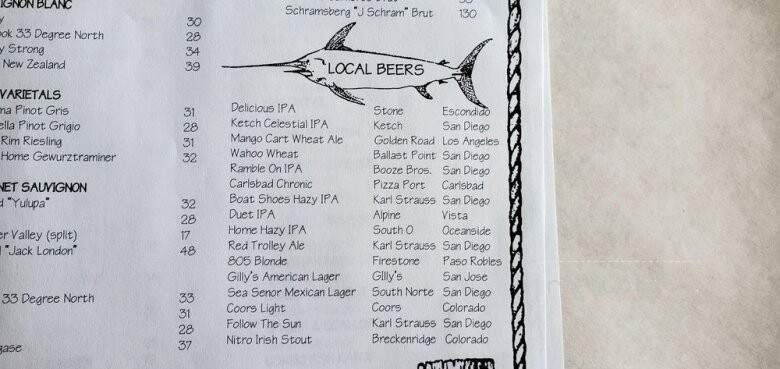 IGNON BLANC
y 30
ok 33 Degree North 28
y Strong 34
New Zealand 39
VARIETALS
na Pinot Gris 31
ella Pinot Grigio 28
Rim Riesling 31
Home Gewurztraminer 32
NET SAUVIGNON
d "Yulupa" 32
28
er Valley (split) 17
"Jack London" 48
33 Degree North 33
31
28
gase 37
Schramsberg "J Schram" Brut 130
LOCAL BEERS
Delicious IPA Stone Escondido
Ketch Celestial IPA Ketch San Diego
Mango Cart Wheat Ale Golden Road Los Angeles
Wahoo Wheat Ballast Point San Diego
Ramble On IPA Booze Bros. San Diego
Carlsbad Chronic Pizza Port Carlsbad
Boat Shoes Hazy IPA Karl Strauss San Diego
Duet IPA Alpine Vista
Home Hazy IPA South O Oceanside
Red Trolley Ale Karl Strauss San Diego
805 Blonde Firestone Paso Robles
Gilly's American Lager Gilly's San Jose
Sea Senor Mexican Lager South Norte San Diego
Coors Light Coors Colorado
Follow The Sun Karl Strauss San Diego
Nitro Irish Stout Breckenridge Colorado